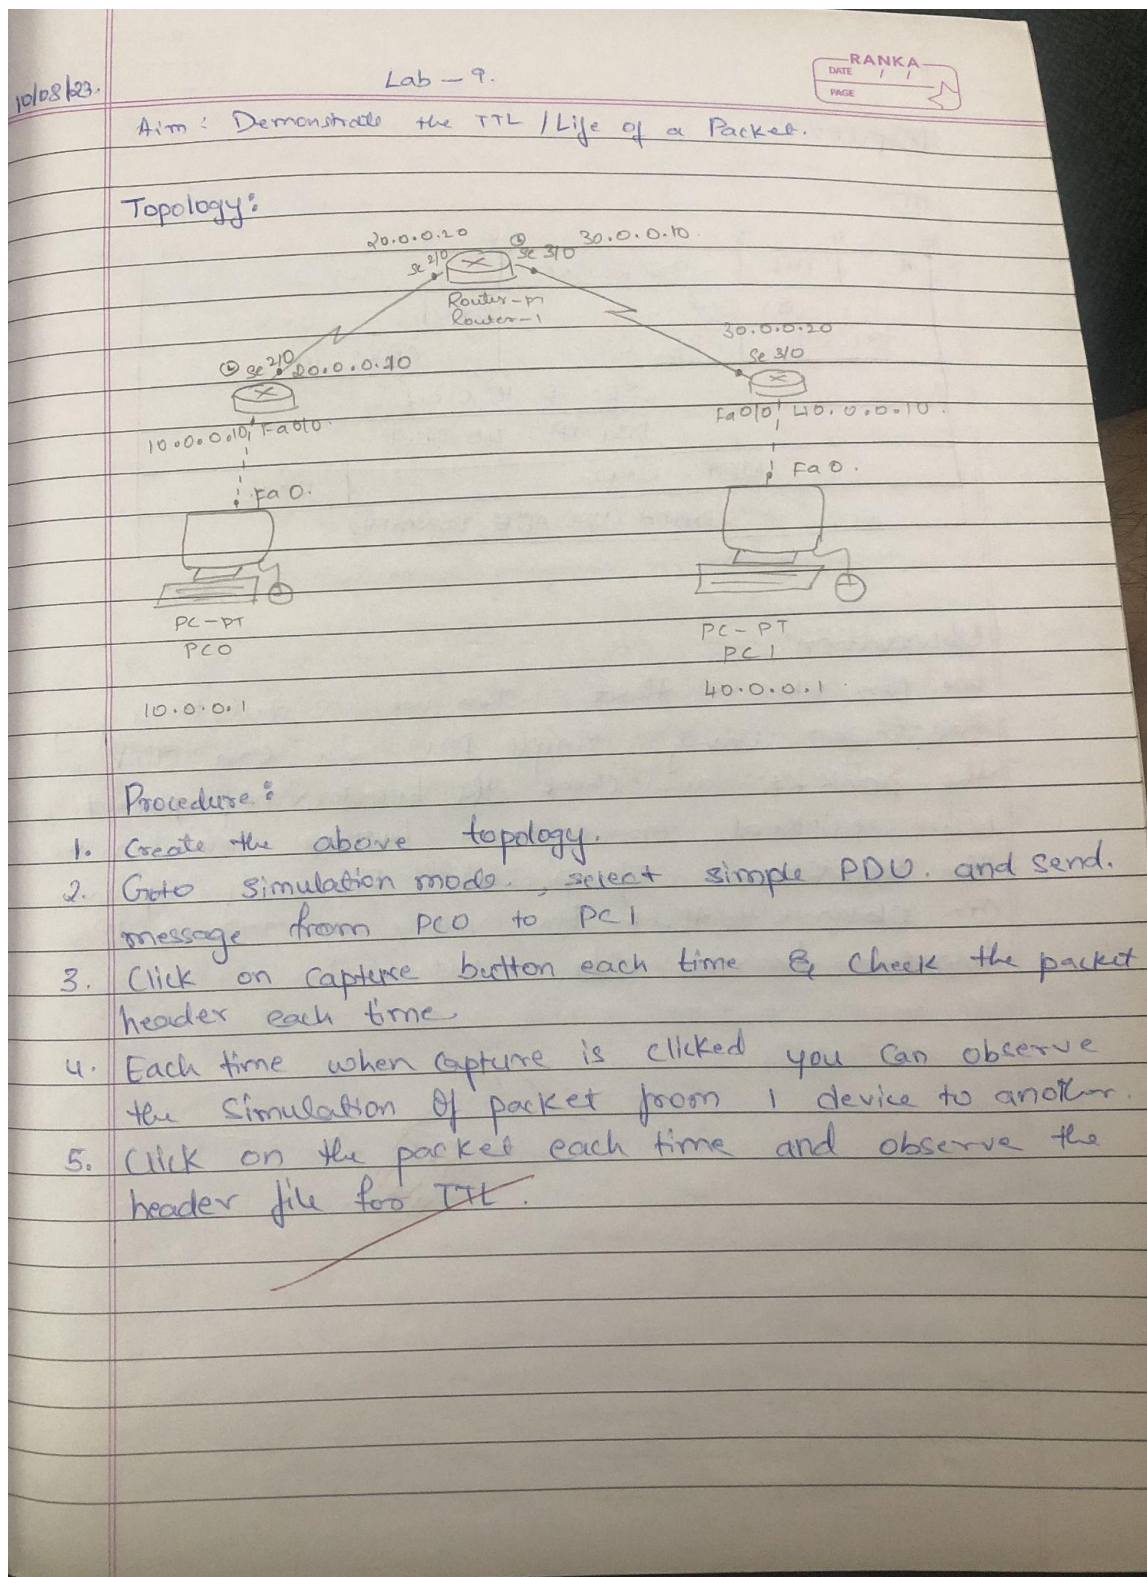 10/08/23.
Lab - 9.
RANKA
DATE / /
PAGE
Aim: Demonstrate the TTL / Life of a Packet.
Topology:
20.0.0.20 30.0.0.10
Se 2/0 Se 3/0
Router-PT
Router-1
30.0.0.20
Se 3/0
Se 2/0 20.0.0.10
Fa0/0 40.0.0.10
10.0.0.10 Fa0/0
Fa 0.
Fa 0.
PC-PT
PC0
PC-PT
PC1
40.0.0.1
10.0.0.1
Procedure:
1. Create the above topology.
2. Goto simulation mode, select simple PDU. and send.
message from PC0 to PC1
3. Click on capture button each time & Check the packet
header each time
4. Each time when capture is clicked you can observe
the simulation of packet from 1 device to another.
5. Click on the packet each time and observe the
header file for TTL.